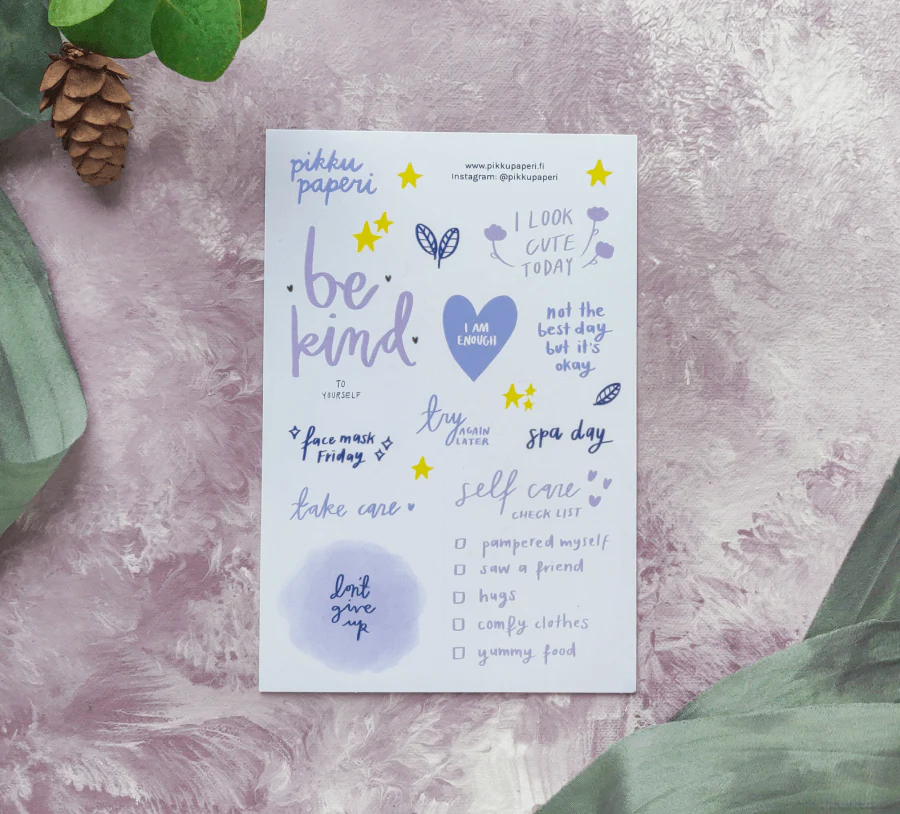 pikku
paperi
www.pikkupaperi.fi
Instagram: @pikkupaperi
I LOOK
CUTE
TODAY
be
kind
TO
YOURSELF
I AM
ENOUGH
not the
best day
but it's
okay
try
AGAIN
LATER
spa day
face mask
Friday
take care
self care
CHECK LIST
pampered myself
saw a friend
hugs
comfy clothes
yummy food
don't
give
up